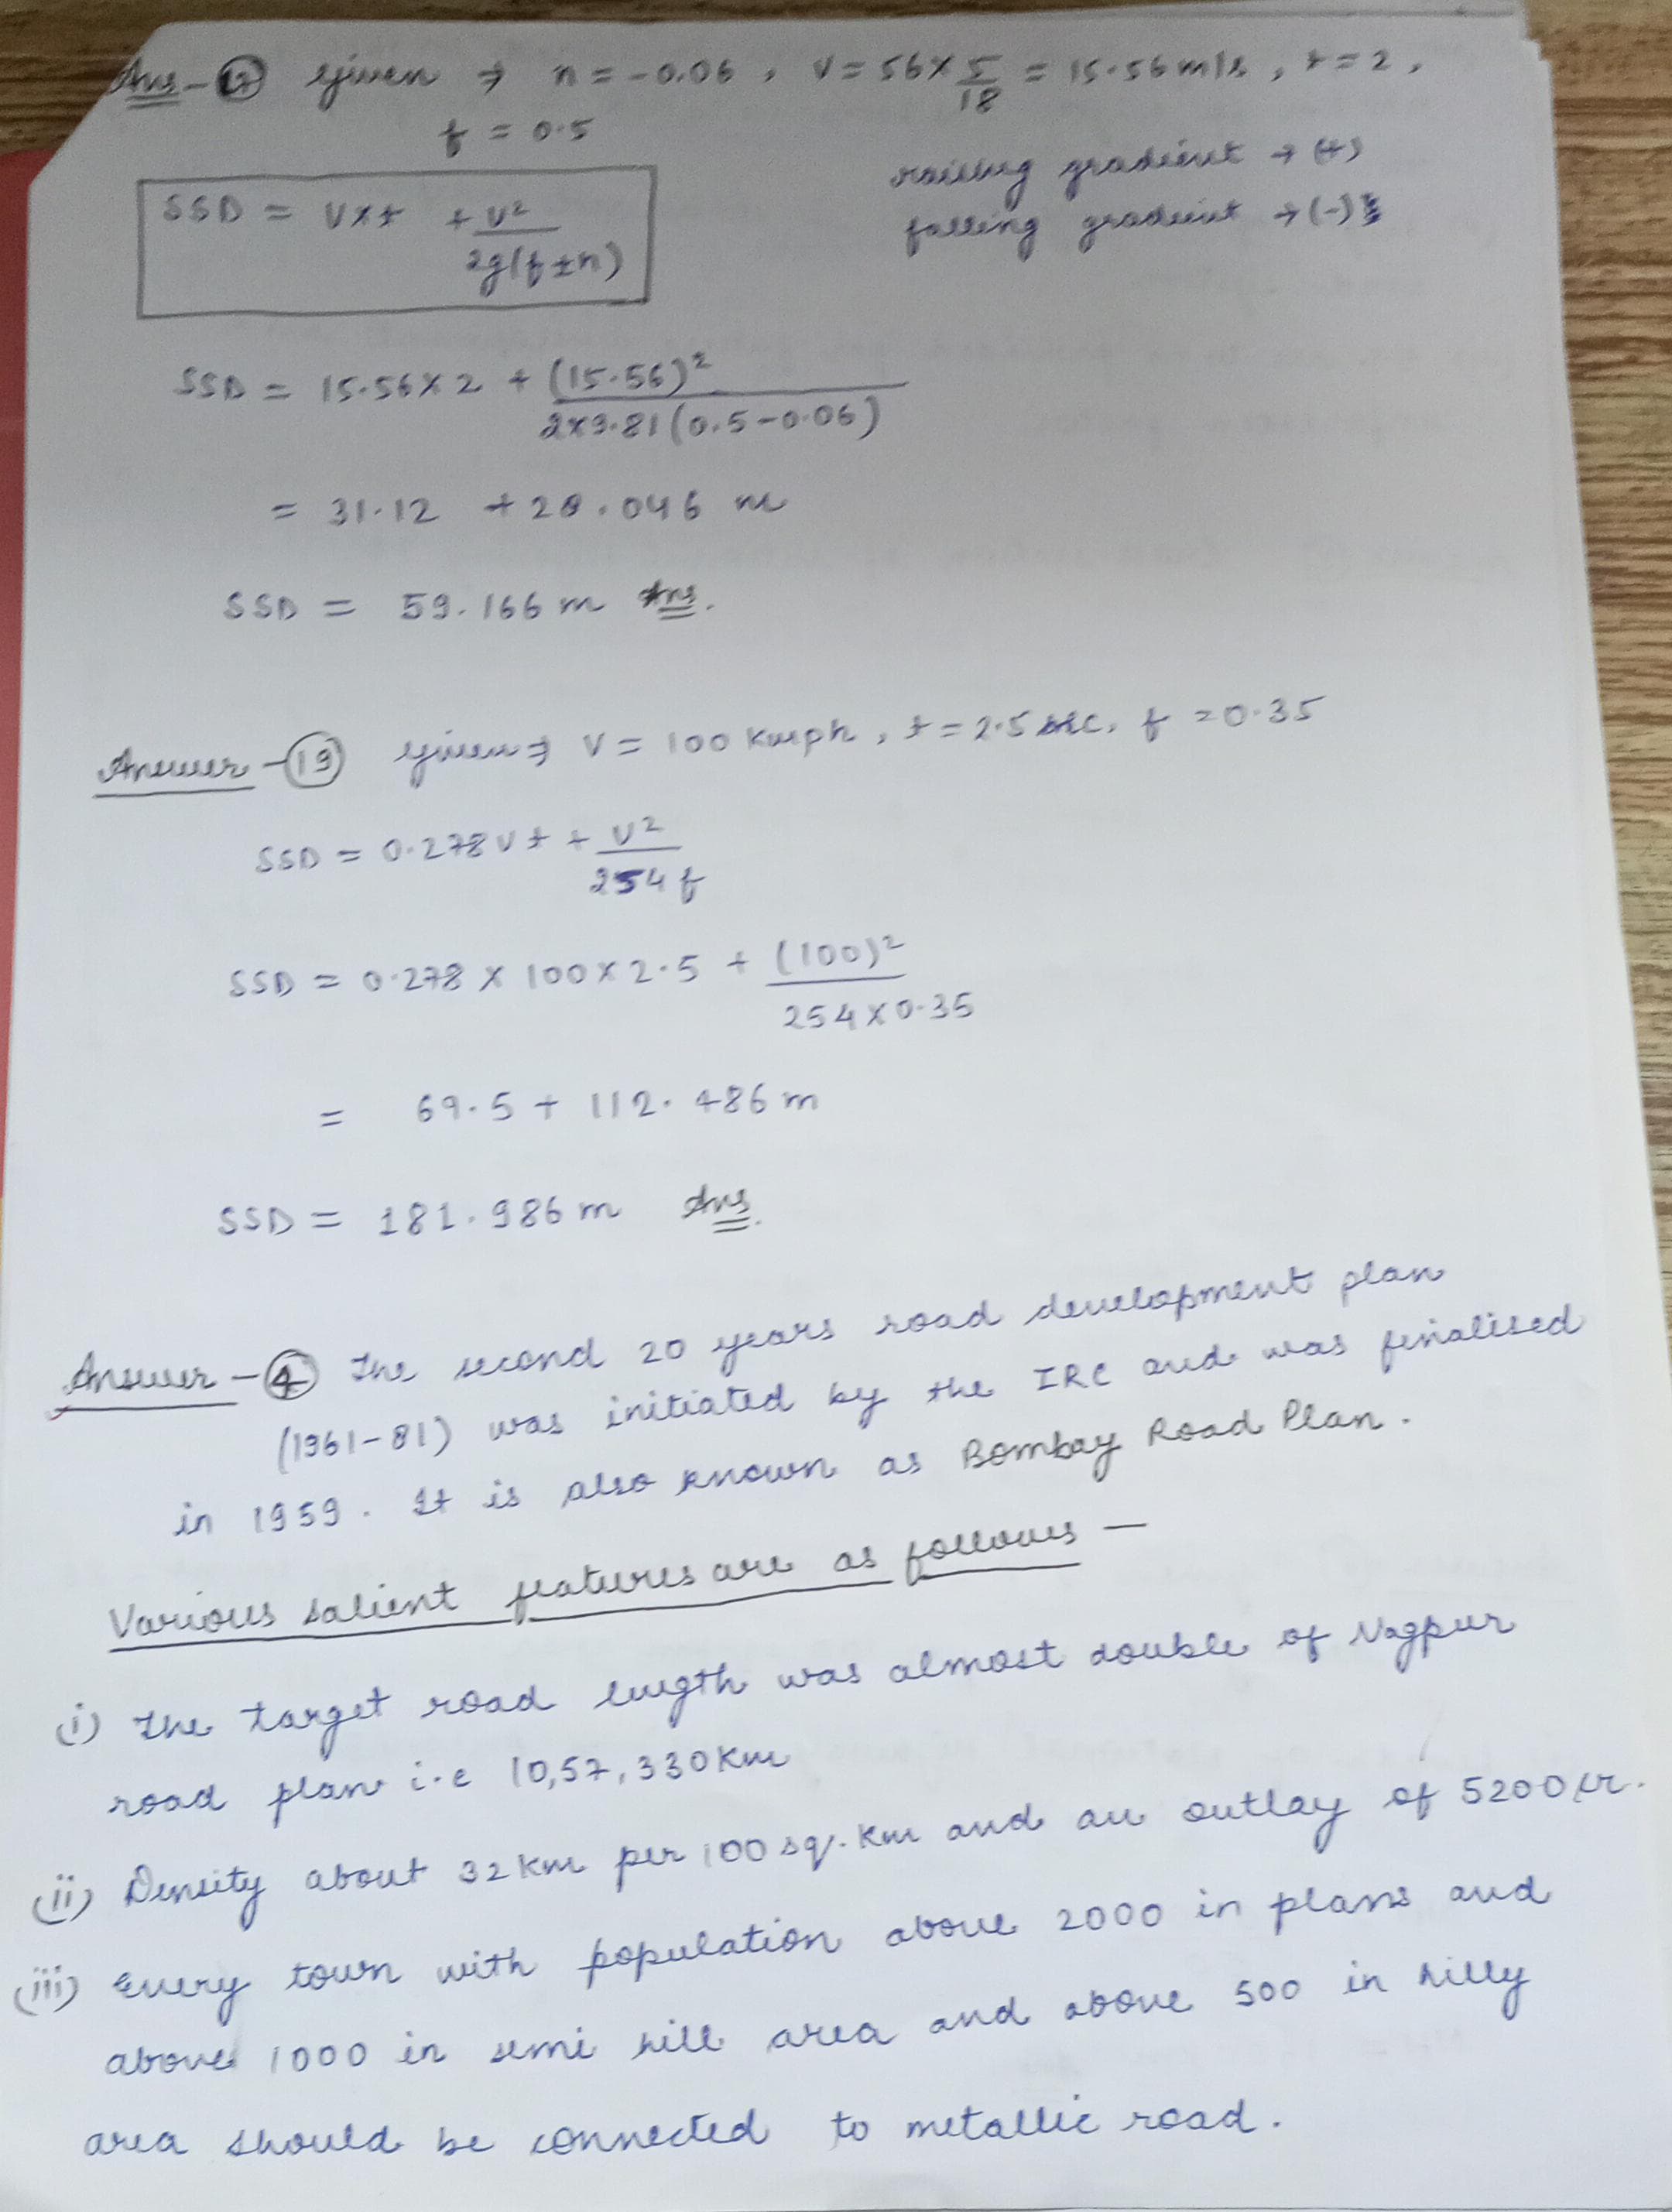 Ans-(17) given → n = -0.06, V = 56 × 5/18 = 15.56 m/s, t = 2,
f = 0.5
raising gradient → (+)
falling gradient → (-)
SSD = V×t + V²/2g(f±n)
SSD = 15.56×2 + (15.56)²/2×9.81(0.5-0.06)
= 31.12 + 28.046 m
SSD = 59.166 m Ans.
Answer-(19) given → V = 100 Kmph, t = 2.5 sec, f = 0.35
SSD = 0.278Vt + V²/254f
SSD = 0.278 × 100 × 2.5 + (100)²/254×0.35
= 69.5 + 112.486 m
SSD = 181.986 m Ans.
Answer-(4) The second 20 years road development plan
(1961-81) was initiated by the IRC and was finalised
in 1959. It is also known as Bombay Road Plan.
Various salient features are as follows —
(i) The target road length was almost double of Nagpur
road plan i.e 10,57,330 Km
(ii) Density about 32 Km per 100 sq. Km and an outlay of 5200 cr.
(iii) Every town with population above 2000 in plans and
above 1000 in semi hill area and above 500 in hilly
area should be connected to metallic road.